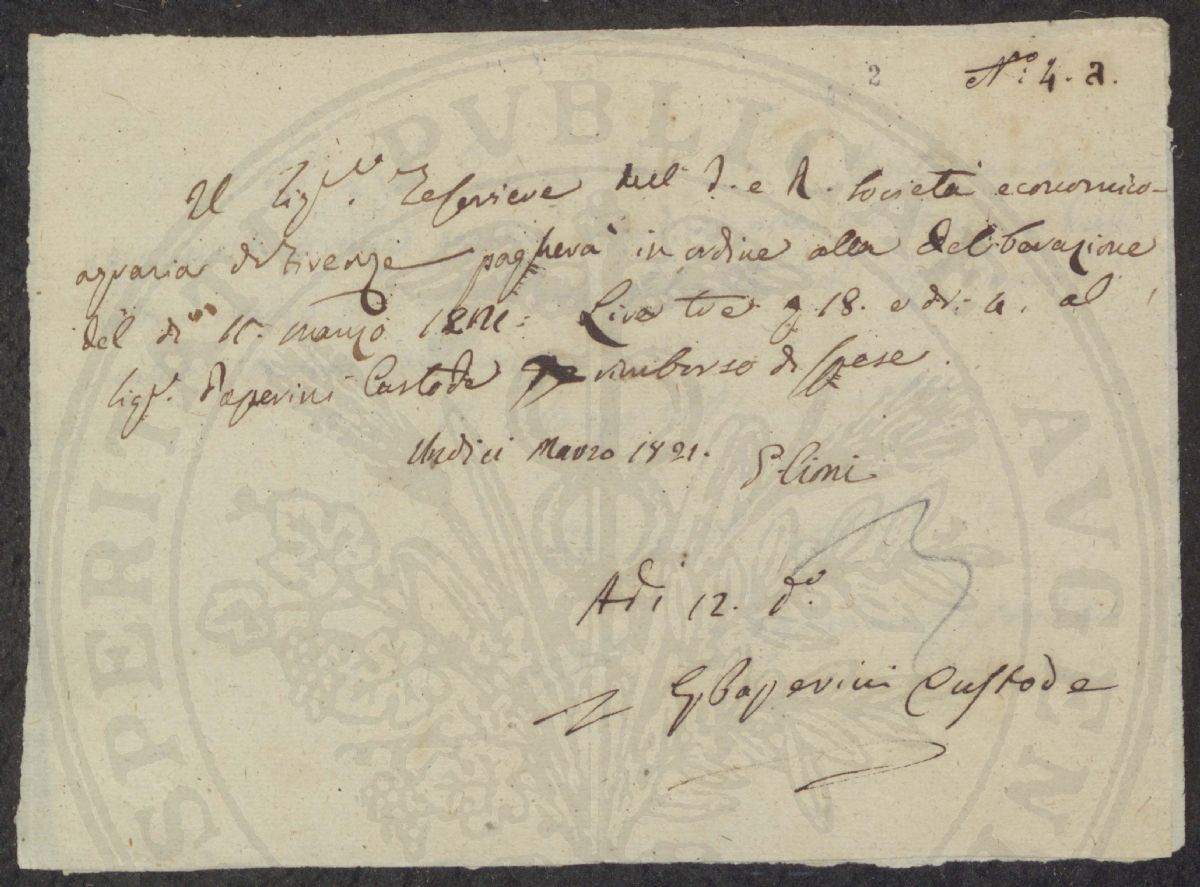 2
N.o 4. a.
Il Sig.r Tesoriere dell' I. e R. Società economico-
agraria di Firenze pagherà in ordine alla deliberazione
del dì 11. marzo 1821. Lire tre 18. e di: 4. al
Sig.r Paperini Custode rimborso di spese.
Undici Marzo 1821.
Adì 12. d.o
G. Paperini Custode
PROSPERITATI PVBLICAE AVGENDAE